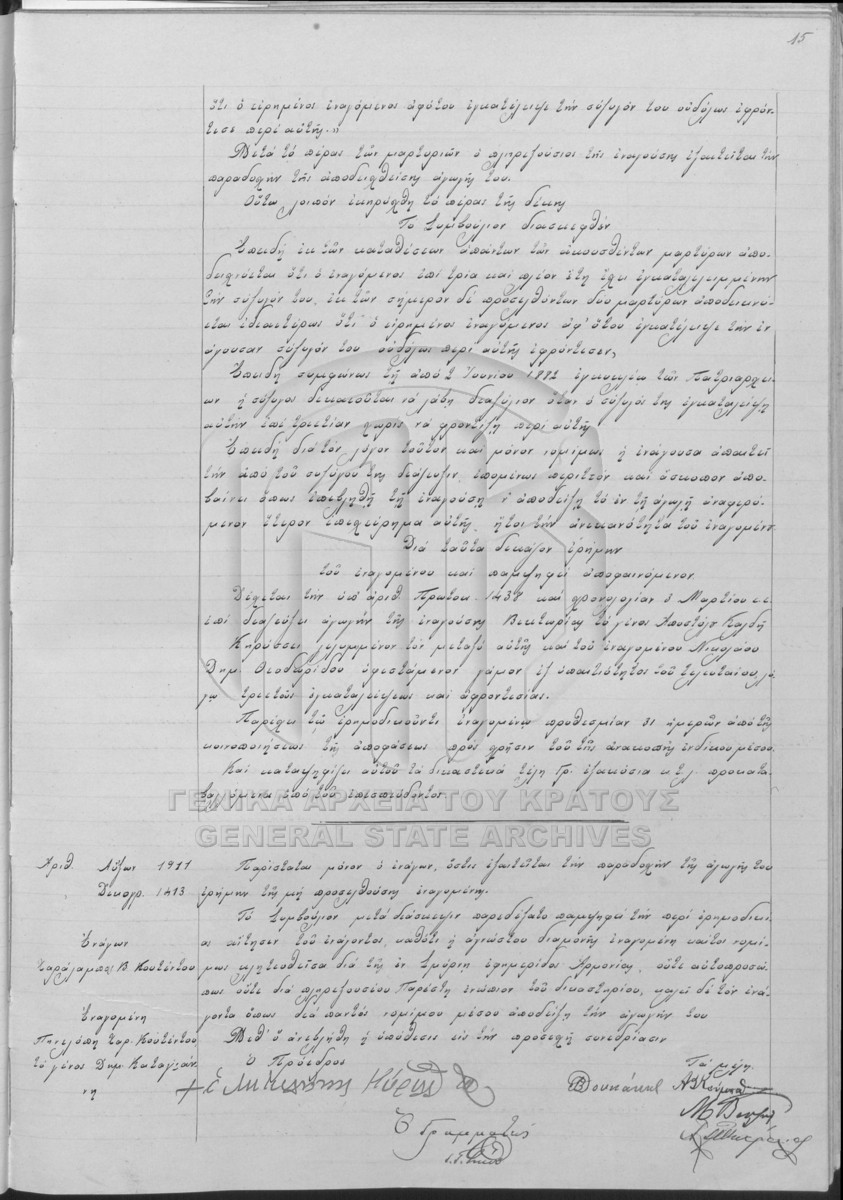 15
ὅτι ὁ εἰρημένος ἐναγόμενος ἀφότου ἐγκατέλειψε τὴν σύζυγόν του οὐδόλως ἐφρόν-
τισε περὶ αὐτῆς.»
Μετὰ τὸ πέρας τῶν μαρτυριῶν ὁ πληρεξούσιος τῆς ἐναγούσης ἐξαιτεῖται τὴν
παραδοχὴν τῆς ἀποδειχθείσης ἀγωγῆς του.
Οὕτω λοιπὸν ἐκηρύχθη τὸ πέρας τῆς δίκης
Τὸ Συμβούλιον διασκεφθὲν
Ἐπειδὴ ἐκ τῶν καταθέσεων ἁπάντων τῶν ἀκουσθέντων μαρτύρων ἀπο-
δεικνύεται ὅτι ὁ ἐναγόμενος ἐπὶ τρία καὶ πλέον ἔτη ἔχει ἐγκαταλελειμμένην
τὴν σύζυγόν του, ἐκ τῶν σήμερον δὲ προσελθόντων δύο μαρτύρων ἀποδεικνύ-
εται ἰδιαιτέρως ὅτι ὁ εἰρημένος ἐναγόμενος ἀφ' ὅτου ἐγκατέλειψε τὴν ἐν
άγουσαν σύζυγόν του οὐδόλως περὶ αὐτῆς ἐφρόντισεν,
Ἐπειδὴ συμφώνως τῇ ἀπὸ 2 Ἰουνίου 1882 ἐγκυκλίῳ τῶν Πατριαρχεί-
ων ἡ σύζυγος δικαιοῦται νὰ λάβῃ διαζύγιον ὅταν ὁ σύζυγός της ἐγκαταλείψῃ
αὐτὴν ἐπὶ τριετίαν χωρὶς νὰ φροντίζῃ περὶ αὐτῆς
Ἐπειδὴ διὰ τὸν λόγον τοῦτον καὶ μόνον νομίμως ἡ ἐνάγουσα ἀπαιτεῖ
τὴν ἀπὸ τοῦ συζύγου της διάζευξιν, ἑπομένως περιττὸν καὶ ἄσκοπον ἀπο-
βαίνει ὅπως ἐπιβληθῇ τῇ ἐναγούσῃ ἡ ἀπόδειξις τὸ ἐν τῇ ἀγωγῇ ἀναφερό-
μενον ἕτερον ἐπιχείρημα αὐτῆς, ἤτοι τὴν ἀνικανότητα τοῦ ἐναγομέν.
Διὰ ταῦτα δικάζον ἐρήμην
τοῦ ἐναγομένου καὶ παμψηφεὶ ἀποφαινόμενον.
Δέχεται τὴν ὑπ' ἀριθ. Πρωτοκ. 1438 καὶ χρονολογίαν 8 Μαρτίου ε.ε.
ἐπὶ διαζεύξει ἀγωγὴν τῆς ἐναγούσης Βικτωρίας τὸ γένος Ἀποστόλ. Καλδῆ
Κηρύσσει λελυμμένον τὸν μεταξὺ αὐτῆς καὶ τοῦ ἐναγομένου Νικολάου
Δημ. Θεοδωρίδου ὑφιστάμενον γάμον ἐξ ὑπαιτιότητος τοῦ τελευταίου, λό-
γῳ τριετοῦς ἐγκαταλείψεως καὶ ἀφροντισίας.
Παρέχει τῷ ἐρημοδικοῦντι ἐναγομένῳ προθεσμίαν 31 ἡμερῶν ἀπὸ τῆς
κοινοποιήσεως τῆς ἀποφάσεως πρὸς χρῆσιν τοῦ τῆς ἀνακοπῆς ἐνδίκου μέσου.
Καὶ καταψηφίζει αὐτοῦ τὰ δικαστικὰ τέλη Γρ. ἑξακόσια κ.τ.λ. προκατα-
βαλλόμενα ὑπὸ τοῦ ἐπισπεύδοντος.
ΓΕΝΙΚΑ ΑΡΧΕΙΑ ΤΟΥ ΚΡΑΤΟΥΣ
GENERAL STATE ARCHIVES
Ἀριθ. Αὔξων 1911
Δικογρ. 1413
Ἐνάγων
Χαράλαμπος Β. Κουτέντου
Ἐναγομένη
Πηνελόπη Χαρ. Κουτέντου
τὸ γένος Δημ. Καταγλάν
νη
Παρίσταται μόνον ὁ ἐνάγων, ὅστις ἐξαιτεῖται τὴν παραδοχὴν τῆς ἀγωγῆς του
ἐρήμην τῆς μὴ προσελθούσης ἐναγομένης.
Τὸ Συμβούλιον μετὰ διάσκεψιν παρεδέξατο παμψηφεὶ τὴν περὶ ἐρημοδικί-
ας αἴτησιν τοῦ ἐνάγοντος, καθότι ἡ ἀγνώστου διαμονῆς ἐναγομένη καίτοι νομί-
μως κλητευθεῖσα διὰ τῆς ἐν Σμύρνῃ ἐφημερίδος Ἁρμονίας, οὔτε αὐτοπροσώ-
πως οὔτε διὰ πληρεξουσίου Παρέστη ἐνώπιον τοῦ δικαστηρίου, καλεῖ δὲ τὸν ἐνά-
γοντα ὅπως διὰ παντὸς νομίμου μέσου ἀποδείξῃ τὴν ἀγωγήν του
Μεθ' ὃ ἀνεβλήθη ἡ ὑπόθεσις εἰς τὴν προσεχῆ συνεδρίασιν
Ὁ Πρόεδρος
Τὰ μέλη
Ὁ Γραμματεὺς